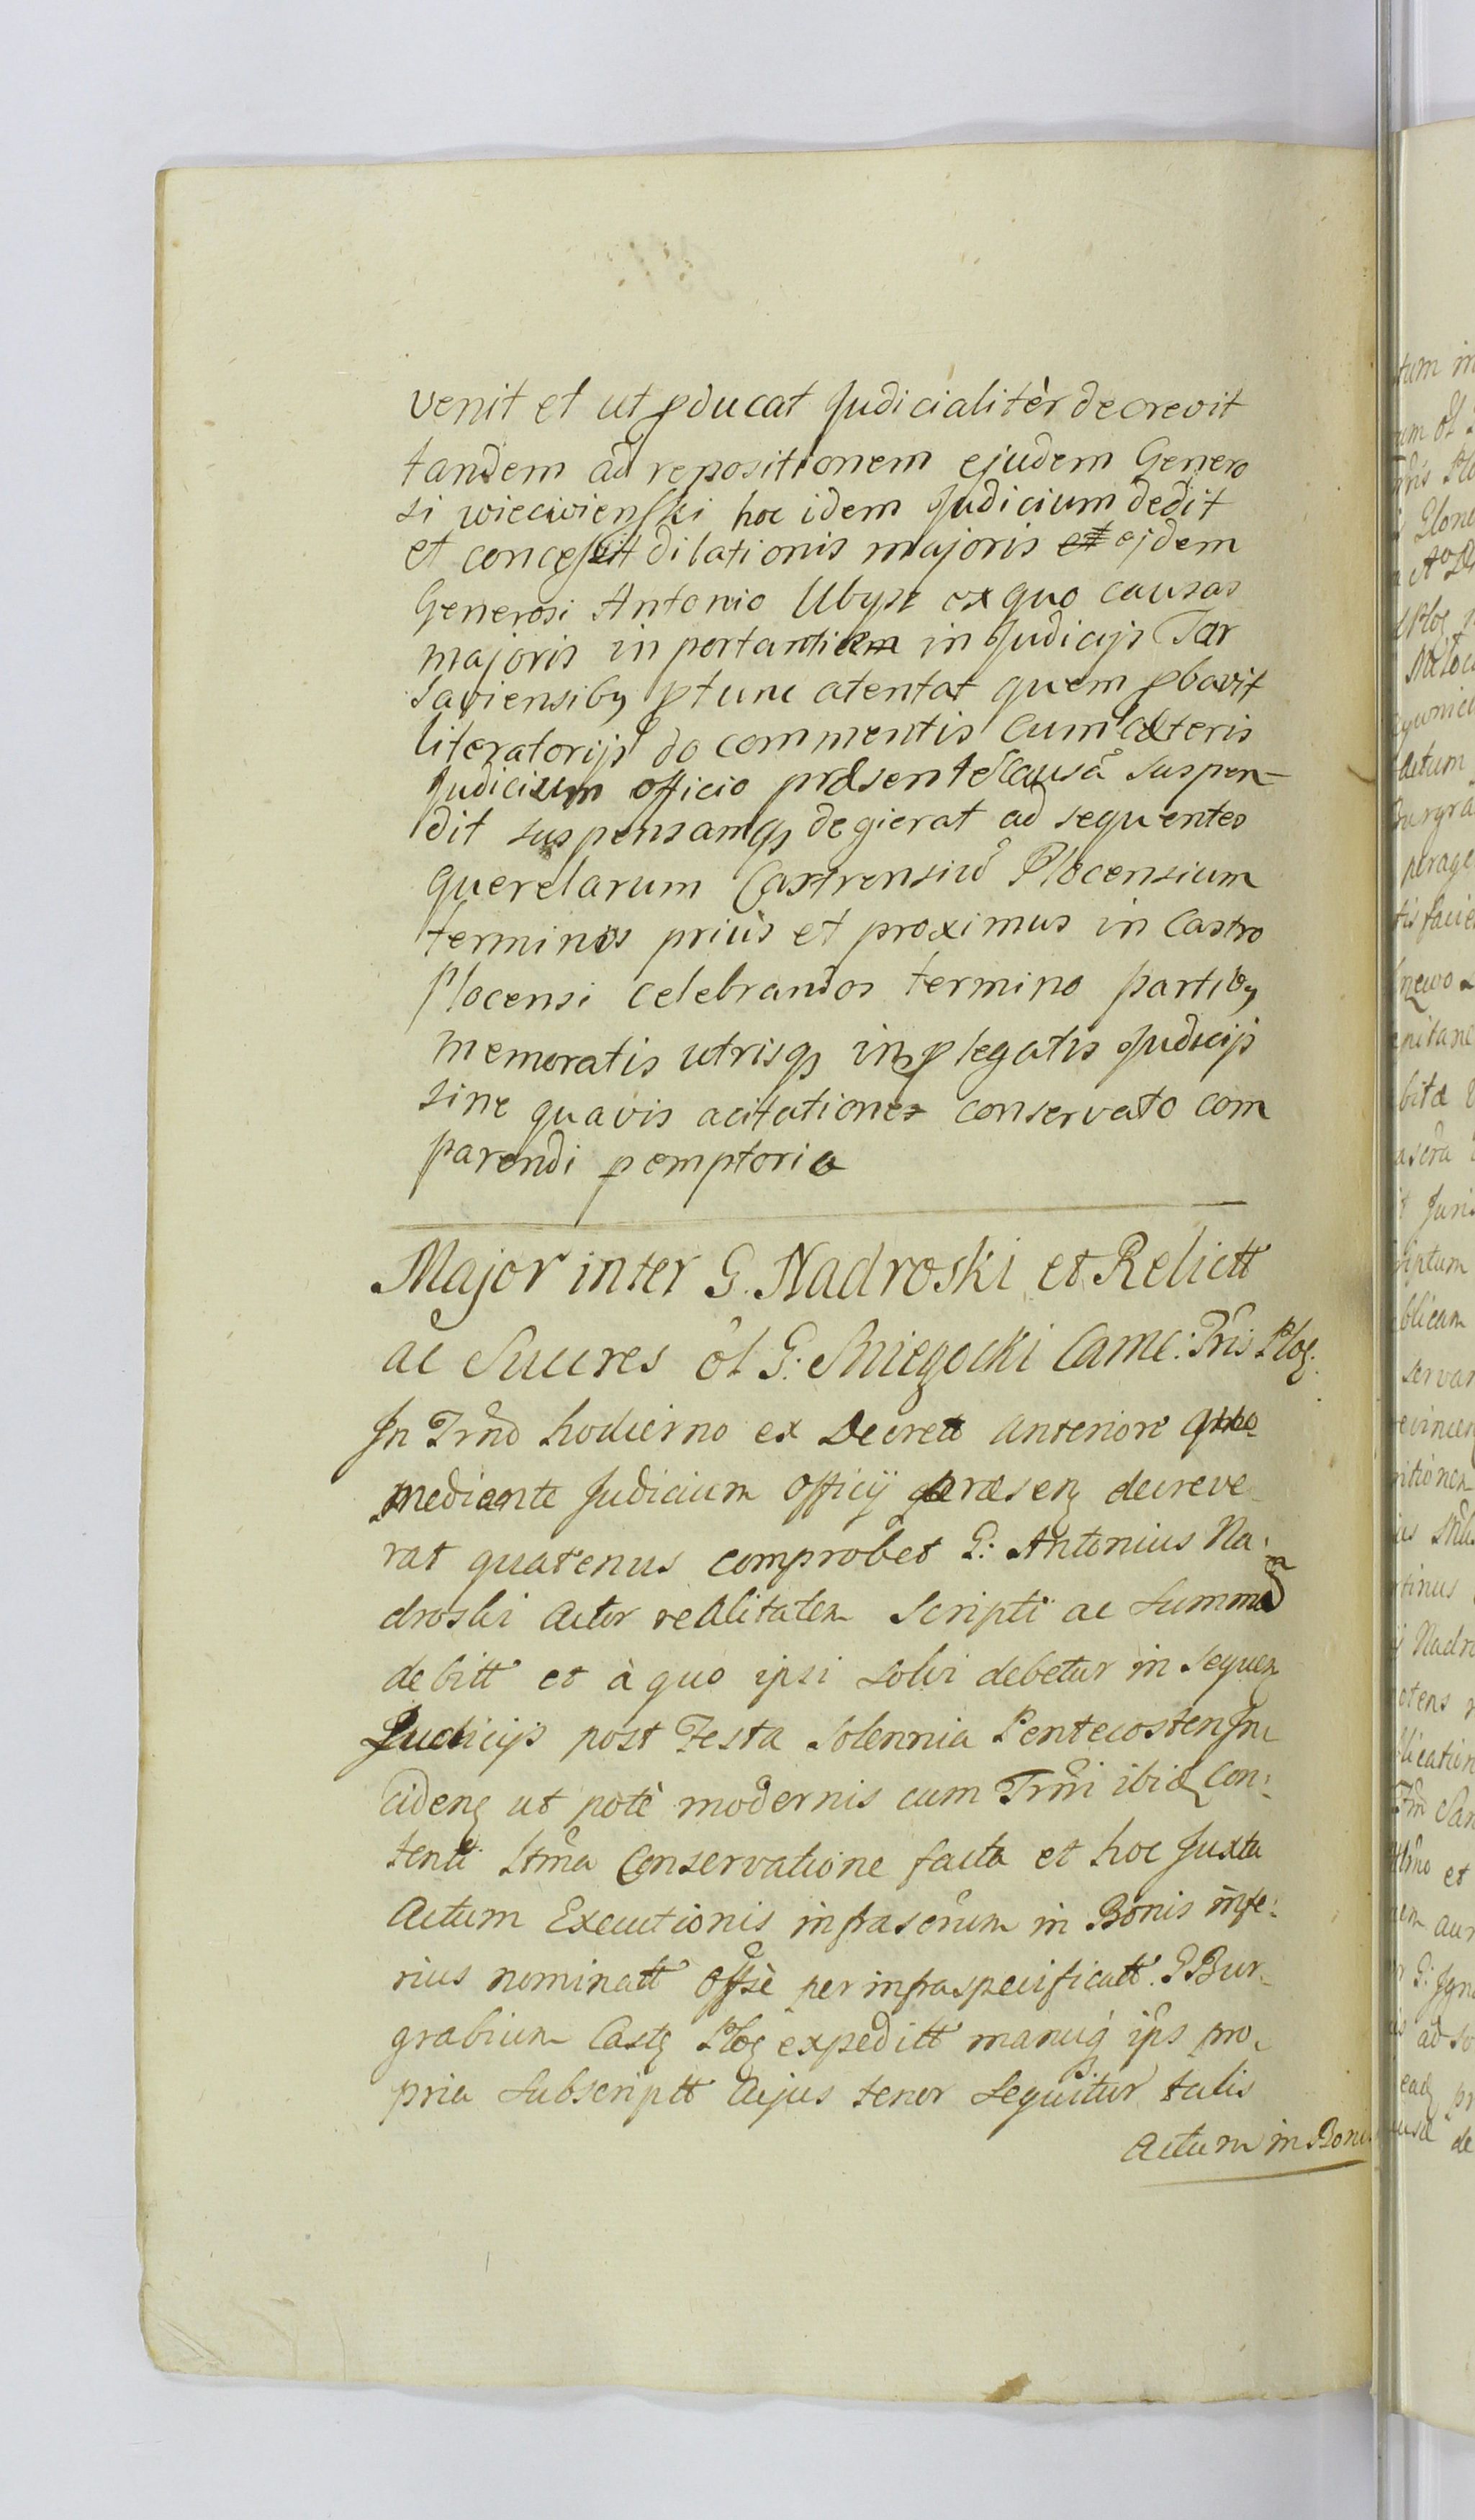 venit et ut pducat Judicialitèr decrevit
tandem ad repositionem ejudem Genero
si wiecwienski hoc idem Judicium dedit
et concessit dilationis majoris ejdem
Generosi Antonio Ubysz ex quo causas
majoris in portantiem in Judicijs Tar
saviensiby ptunc atentat quem pbavit
literatorijs do commentis cum cæteris
Judicium officio præsente causã suspen-
dit suspensamq degierat ad sequentes
querelarum Castrensiũ Plocensium
terminos priùs et proximus in Castro
Plocensi celebrandos termino partiby
memoratis utrisq in plegatis Judicijs
sine quavis acitatione conservato com
parendi pemptorio
Major inter G. Nadroski et Relictt
ac Succres ol G: Sniegocki Came: Tris Ploc:
In Trno hodierno ex Decrett anteriore quo
mediante Judicium officij præsen decreve-
rat quatenus comprobet G: Antonius Na:
droski Actor realitatem Scripti ac Summa
debitt et à quo ipsi solvi debetur in sequen
Judicijs post Festa Solennia Pentecosten In
ciden ut potè modernis cum Trni ibid Con:
tenti Ttma Conservatione facta et hoc Juxta
Actum Executionis infrascrum in Bonis infe:
rius nominatt offsè per infraspecificatt G Bur-
grabium Castr Ploc expeditt manuq ips pro-
pria Subscriptt Cujus tenor sequitur talis
Actum in Bonis